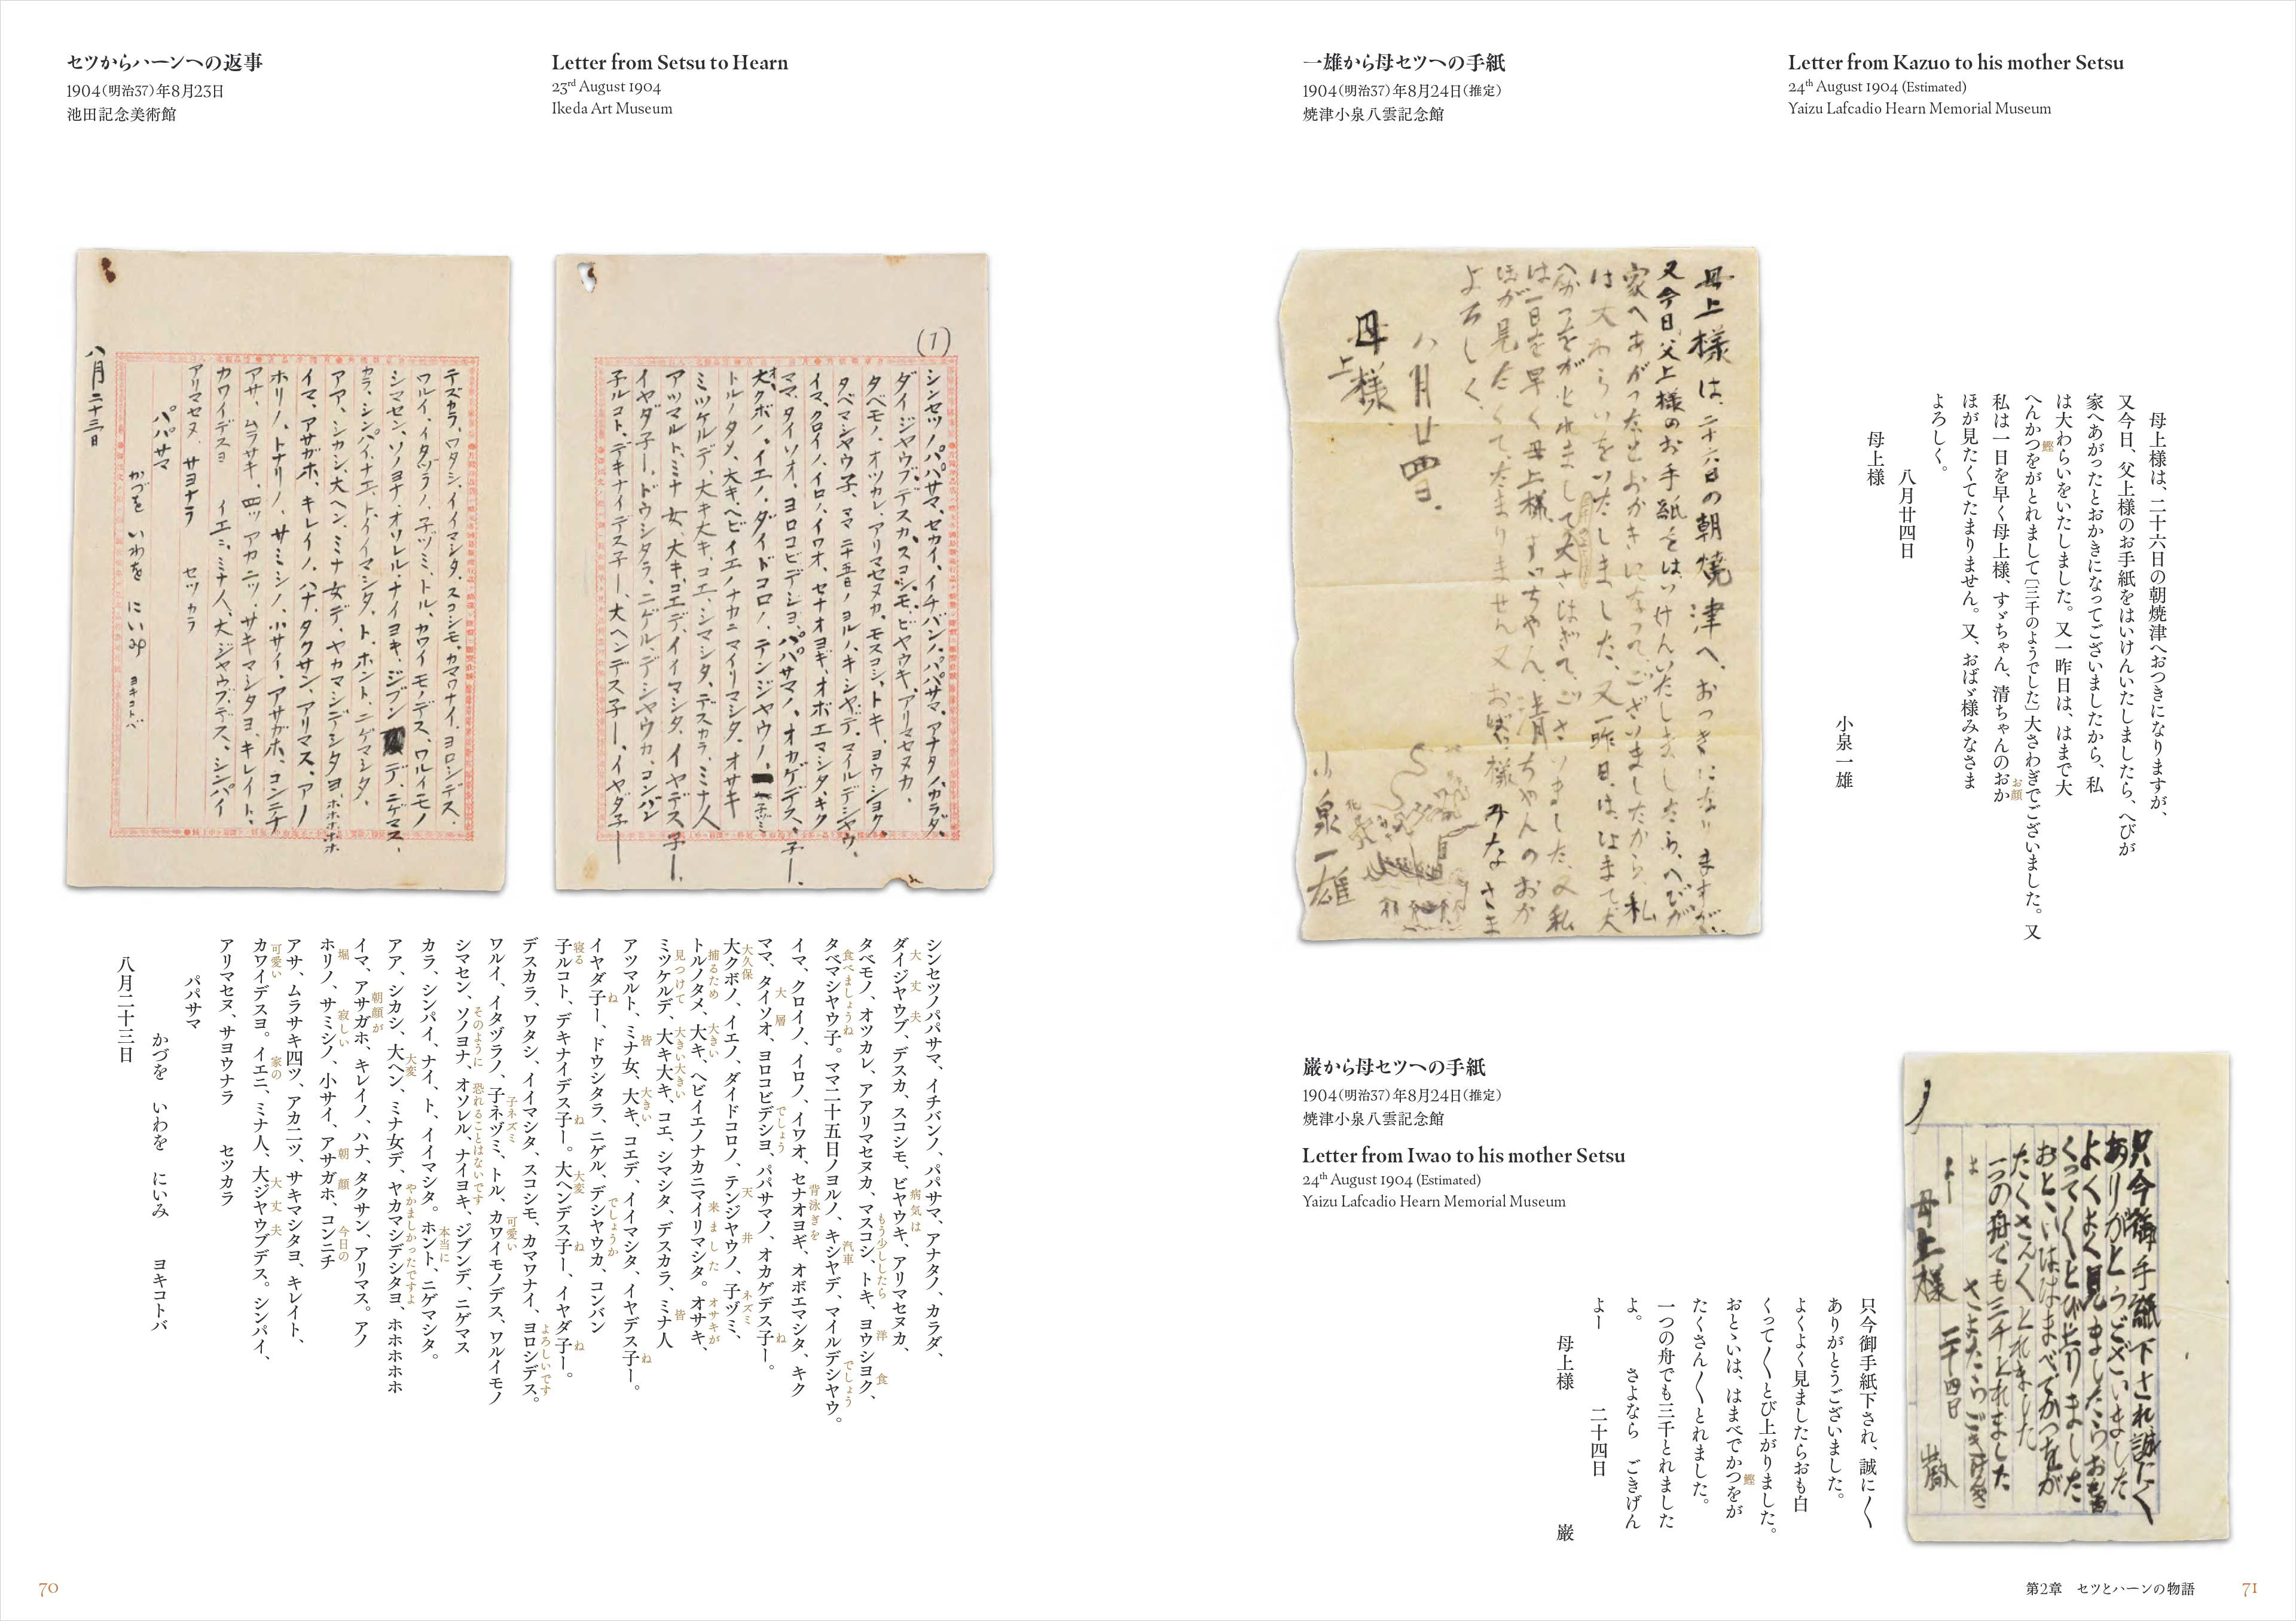 セツからハーンへの返事
1904（明治37）年8月23日
池田記念美術館
Letter from Setsu to Hearn
23rd August 1904
Ikeda Art Museum
(1)
シンセツノパパサマ、イチバンノ、パパサマ、アナタノ、カラダ、
ダイジヤウブ、デスカ、スコシモ、ビヤウキ、アリマセヌカ、
タベモノ、オツカレ、アアリマセヌカ、マスコシ、トキ、ヨウシヨク、
タベマシヤウ子。ママ二十五日ノヨルノ、キシヤデ、マイルデシヤウ。
イマ、クロイノ、イロノ、イワオ、セナオヨギ、オボエマシタ、キク
ママ、タイソオ、ヨロコビデシヨ、パパサマノ、オカゲデス子ー。
大クボノ、イエノ、ダイドコロノ、テンジヤウノ、子ヅミ、
トルノタメ、大キ、ヘビイエノナカニマイリマシタ。オサキ、
ミツケルデ、大キ大キ、コエ、シマシタ、デスカラ、ミナ人
アツマルト、ミナ女、大キ、コエデ、イイマシタ、イヤデス子ー。
イヤダ子ー、ドウシタラ、ニゲル、デシヤウカ、コンバン
子ルコト、デキナイデス子ー。大ヘンデス子ー、イヤダ子ー。
デスカラ、ワタシ、イイマシタ、スコシモ、カマワナイ、ヨロシデス。
ワルイ、イタヅラノ、子ネヅミ、トル、カワイモノデス、ワルイモノ
シマセン、ソノヨナ、オソレル、ナイヨキ、ジブンデ、ニゲマス
カラ、シンパイ、ナイ、ト、イイマシタ。ホント、ニゲマシタ。
アア、シカシ、大ヘン、ミナ女デ、ヤカマシデシタヨ、ホホホホホ
イマ、アサガホ、キレイノ、ハナ、タクサン、アリマス。アノ
ホリノ、サミシノ、小サイ、アサガホ、コンニチ
アサ、ムラサキ四ツ、アカ二ツ、サキマシタヨ、キレイト、
カワイデスヨ。イエニ、ミナ人、大ジヤウブデス。シンパイ、
アリマセヌ、サヨウナラ　セツカラ
パパサマ
かづを　いわを　にいみ　ヨキコトバ
八月二十三日
70
一雄から母セツへの手紙
1904（明治37）年8月24日（推定）
焼津小泉八雲記念館
Letter from Kazuo to his mother Setsu
24th August 1904 (Estimated)
Yaizu Lafcadio Hearn Memorial Museum
母上様は、二十六日の朝焼津へおつきになりますが、
又今日、父上様のお手紙をはいけんいたしましたら、へびが
家へあがったとおかきになってございましたから、私
は大わらいをいたしました。又一昨日は、はまで大
へんかつをがとれまして〔三千のようでした〕大さわぎでございました。又
私は一日を早く母上様、すゞちゃん、清ちゃんのおか
ほが見たくてたまりません。又、おばゞ様みなさま
よろしく。
八月廿四日
母上様
小泉一雄
巌から母セツへの手紙
1904（明治37）年8月24日（推定）
焼津小泉八雲記念館
Letter from Iwao to his mother Setsu
24th August 1904 (Estimated)
Yaizu Lafcadio Hearn Memorial Museum
只今御手紙下され、誠に〱
ありがとうございました。
よくよく見ましたらおも白
くって〱とび上がりました。
おとゝいは、はまべでかつをが
たくさん〱とれました。
一つの舟でも三千とれました
よ。　さよなら　ごきげん
よー　二十四日
母上様　巌
第2章　セツとハーンの物語
71